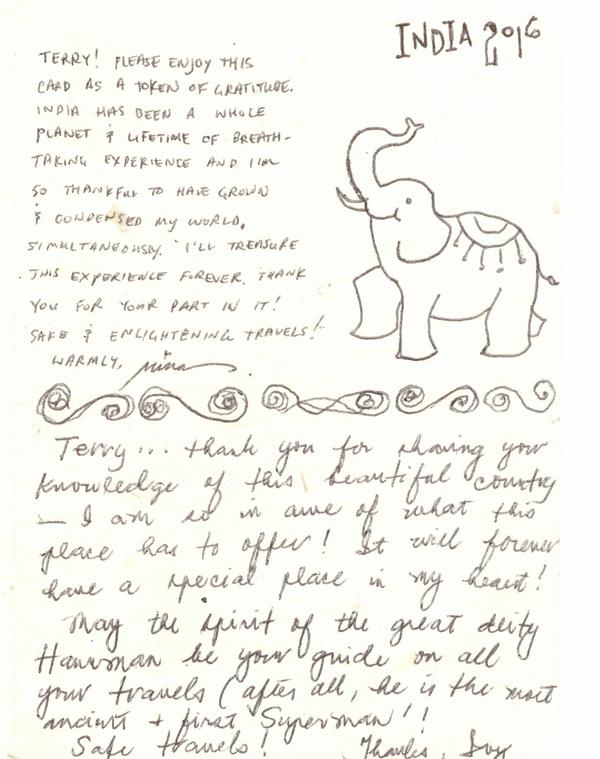 INDIA 2016
TERRY! PLEASE ENJOY THIS
CARD AS A TOKEN OF GRATITUDE.
INDIA HAS BEEN A WHOLE
PLANET & LIFETIME OF BREATH-
TAKING EXPERIENCE AND I'M
SO THANKFUL TO HAVE GROWN
& CONDENSED MY WORLD,
SIMULTANEOUSLY. I'LL TREASURE
THIS EXPERIENCE FOREVER. THANK
YOU FOR YOUR PART IN IT!
SAFE & ENLIGHTENING TRAVELS!
WARMLY, Nina
Terry... thank you for sharing your
knowledge of this beautiful country
— I am so in awe of what this
place has to offer! It will forever
have a special place in my heart!
May the spirit of the great deity
Hanuman be your guide on all
your travels (after all, he is the most
ancient + first Superman!!
Safe travels! Thanks,